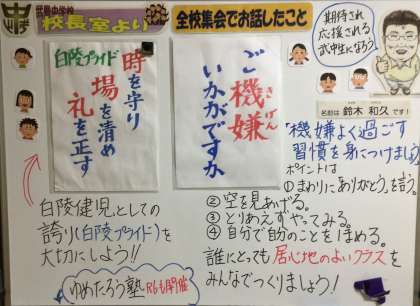 武豊中学校
校長室より
全校集会でお話したこと
期待され
応援される
武中生になろう
白陵プライド
時を守り
場を清め
礼を正す
ご機嫌
きげん
いかがですか
名前は 鈴木 和久 です!
「機嫌よく過ごす
習慣を身につけましょう
ポイントは
①まわりに「ありがとう」を言う。
②空を見あげる。
③とりあえずやってみる。
④自分で自分のことをほめる。
誰にとっても居心地のよいクラスを
みんなでつくりましょう!
白陵健児としての
誇り(白陵プライド)を
大切にしよう!!
ゆめたろう塾 R6も開催